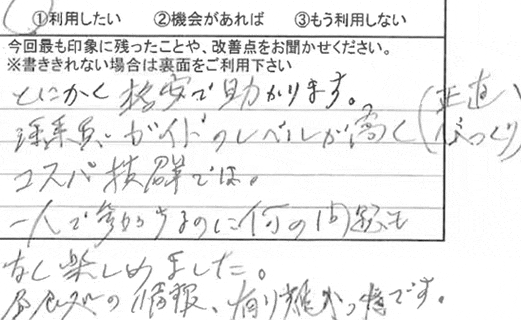 ①利用したい ②機会があれば ③もう利用しない
今回最も印象に残ったことや、改善点をお聞かせください。
※書ききれない場合は裏面をご利用下さい
とにかく格安で助かります。
添乗員・ガイドのレベルが高く(正直びっくり)
コスパ抜群では。
一人で参加するのに何の問題も
なく楽しめました。
の情報、有り難かったです。